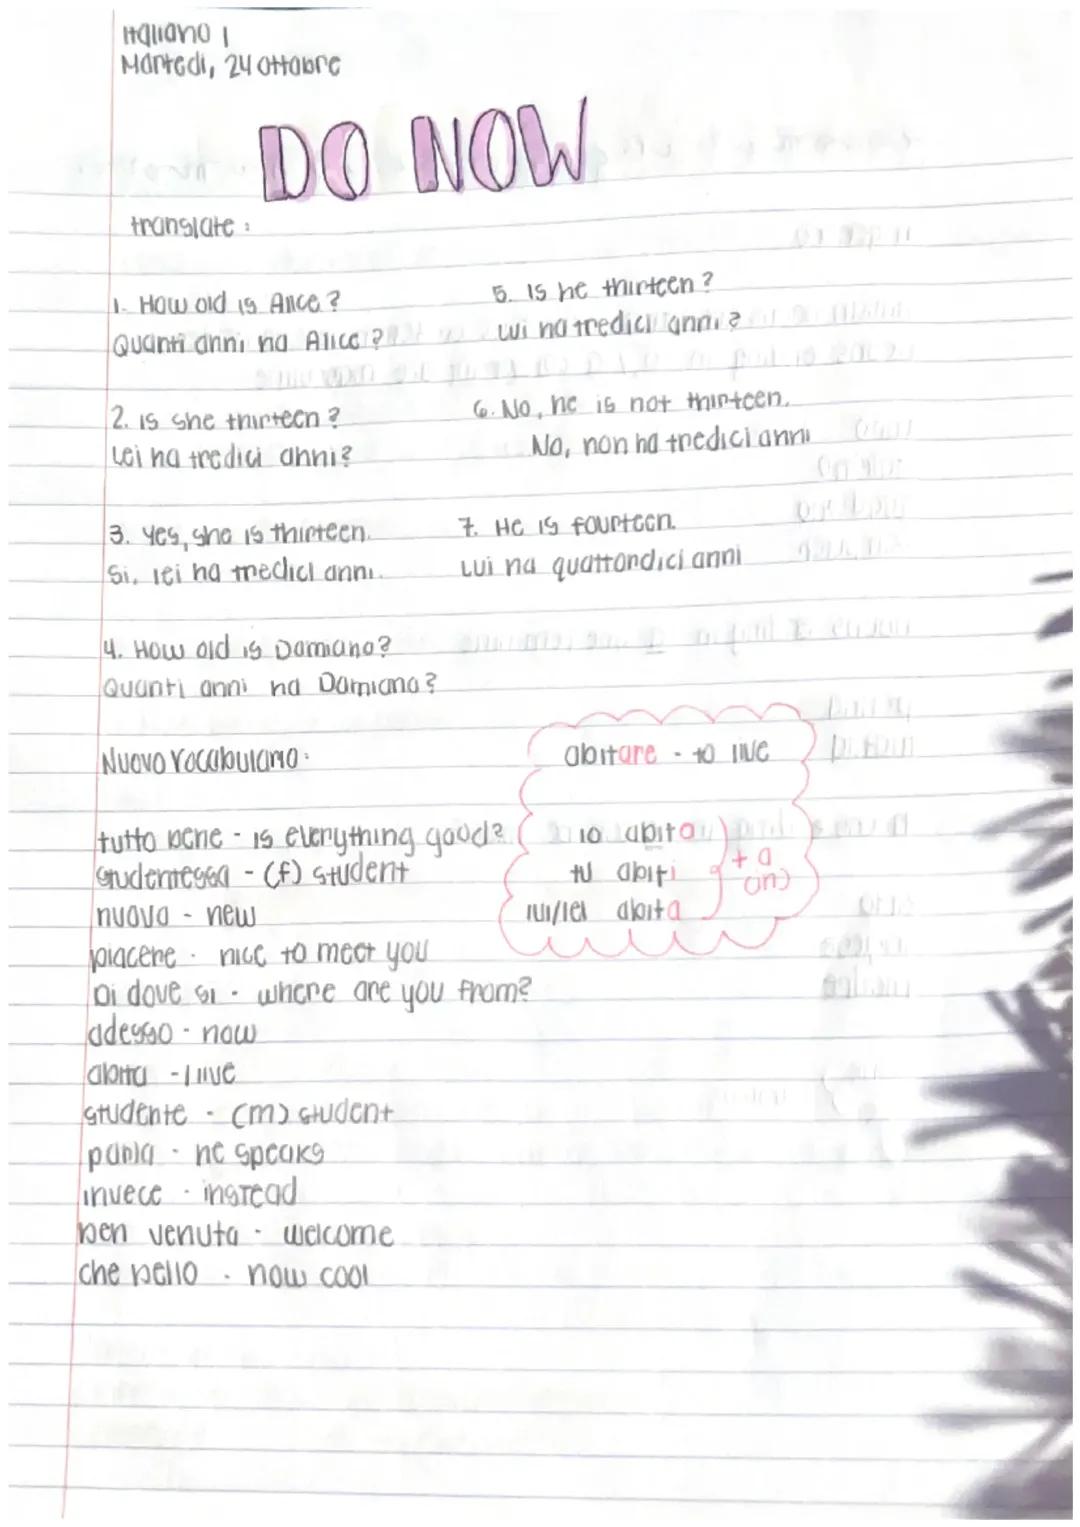 Italiano 1
Martedi, 24 ottobre
DO NOW
translate:
1. How old is Alice?
Quanti anni ha Alice?
2. is she thirteen?
Lei ha tredici anni?
3. Yes, she is thirteen.
Si, lei ha tredici anni.
4. How old is Damiano?
Quanti anni ha Damiano?
5. Is he thirteen?
Lui ha tredici anni?
6. No, he is not thirteen.
No, non ha tredici anni
7. He is fourteen.
Lui ha quattordici anni
Nuovo Vocabulario:
tutto bene - is everything good?
studentessa - (f) student
nuova - new
piacere - nice to meet you
Di dove si - where are you from?
adesso - now
abita - live
studente - (m) student
parla - he speaks
invece - instead
ben venuta - welcome
che bello - how cool
abitare - to live
io abito
tu abiti
lui/lei abita
+ a
(in)